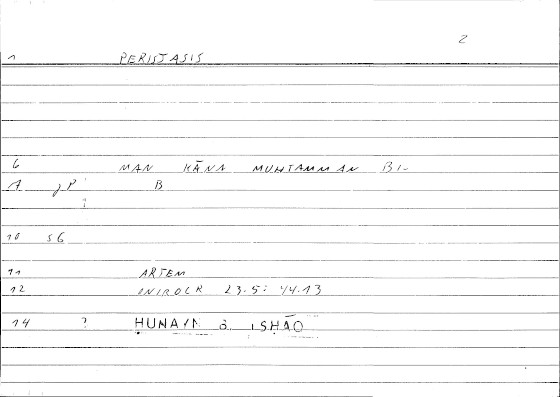 2
1 PERISTASIS
6 MAN KĀNA MUHTAMMAN BI-
7 B
?
10 56
11 ARTEM
12 ONIROCR 23.5: 44.13
14 ? HUNAIN b. ISHĀQ